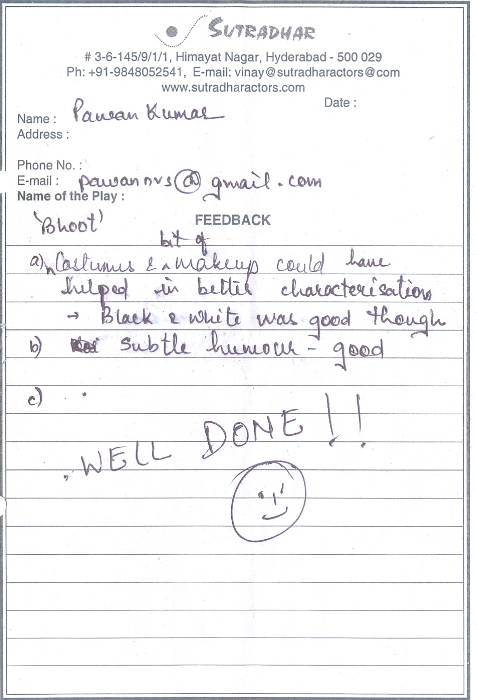 SUTRADHAR
# 3-6-145/9/1/1, Himayat Nagar, Hyderabad - 500 029
Ph: +91-9848052541, E-mail: vinay@sutradharactors.com
www.sutradharactors.com
Date :
Name : Pawan Kumar
Address :
Phone No. :
E-mail : pawannvs@gmail.com
Name of the Play :
'Bhoot'
FEEDBACK
bit of
a) Costumes & makeup could have
helped in better characterisation
→ Black & white was good though
b) subtle humour - good
c)
WELL DONE !!